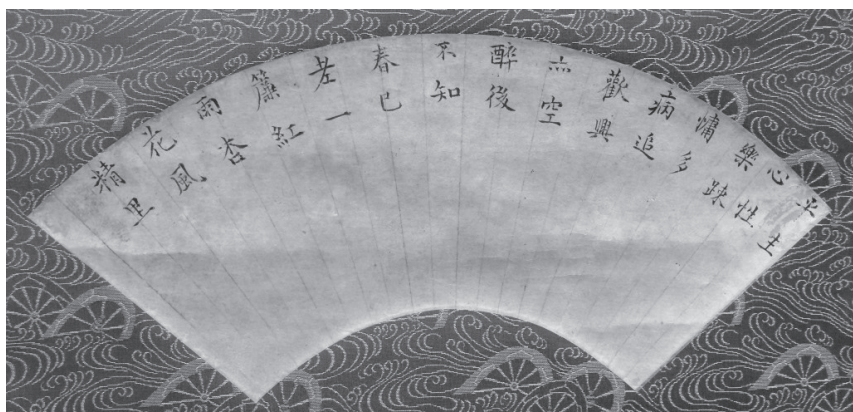 平生
心性
樂疎
慵多
病追
歡興
亦空
醉後
不知
春已
老一
簾紅
雨杏
花風
精里